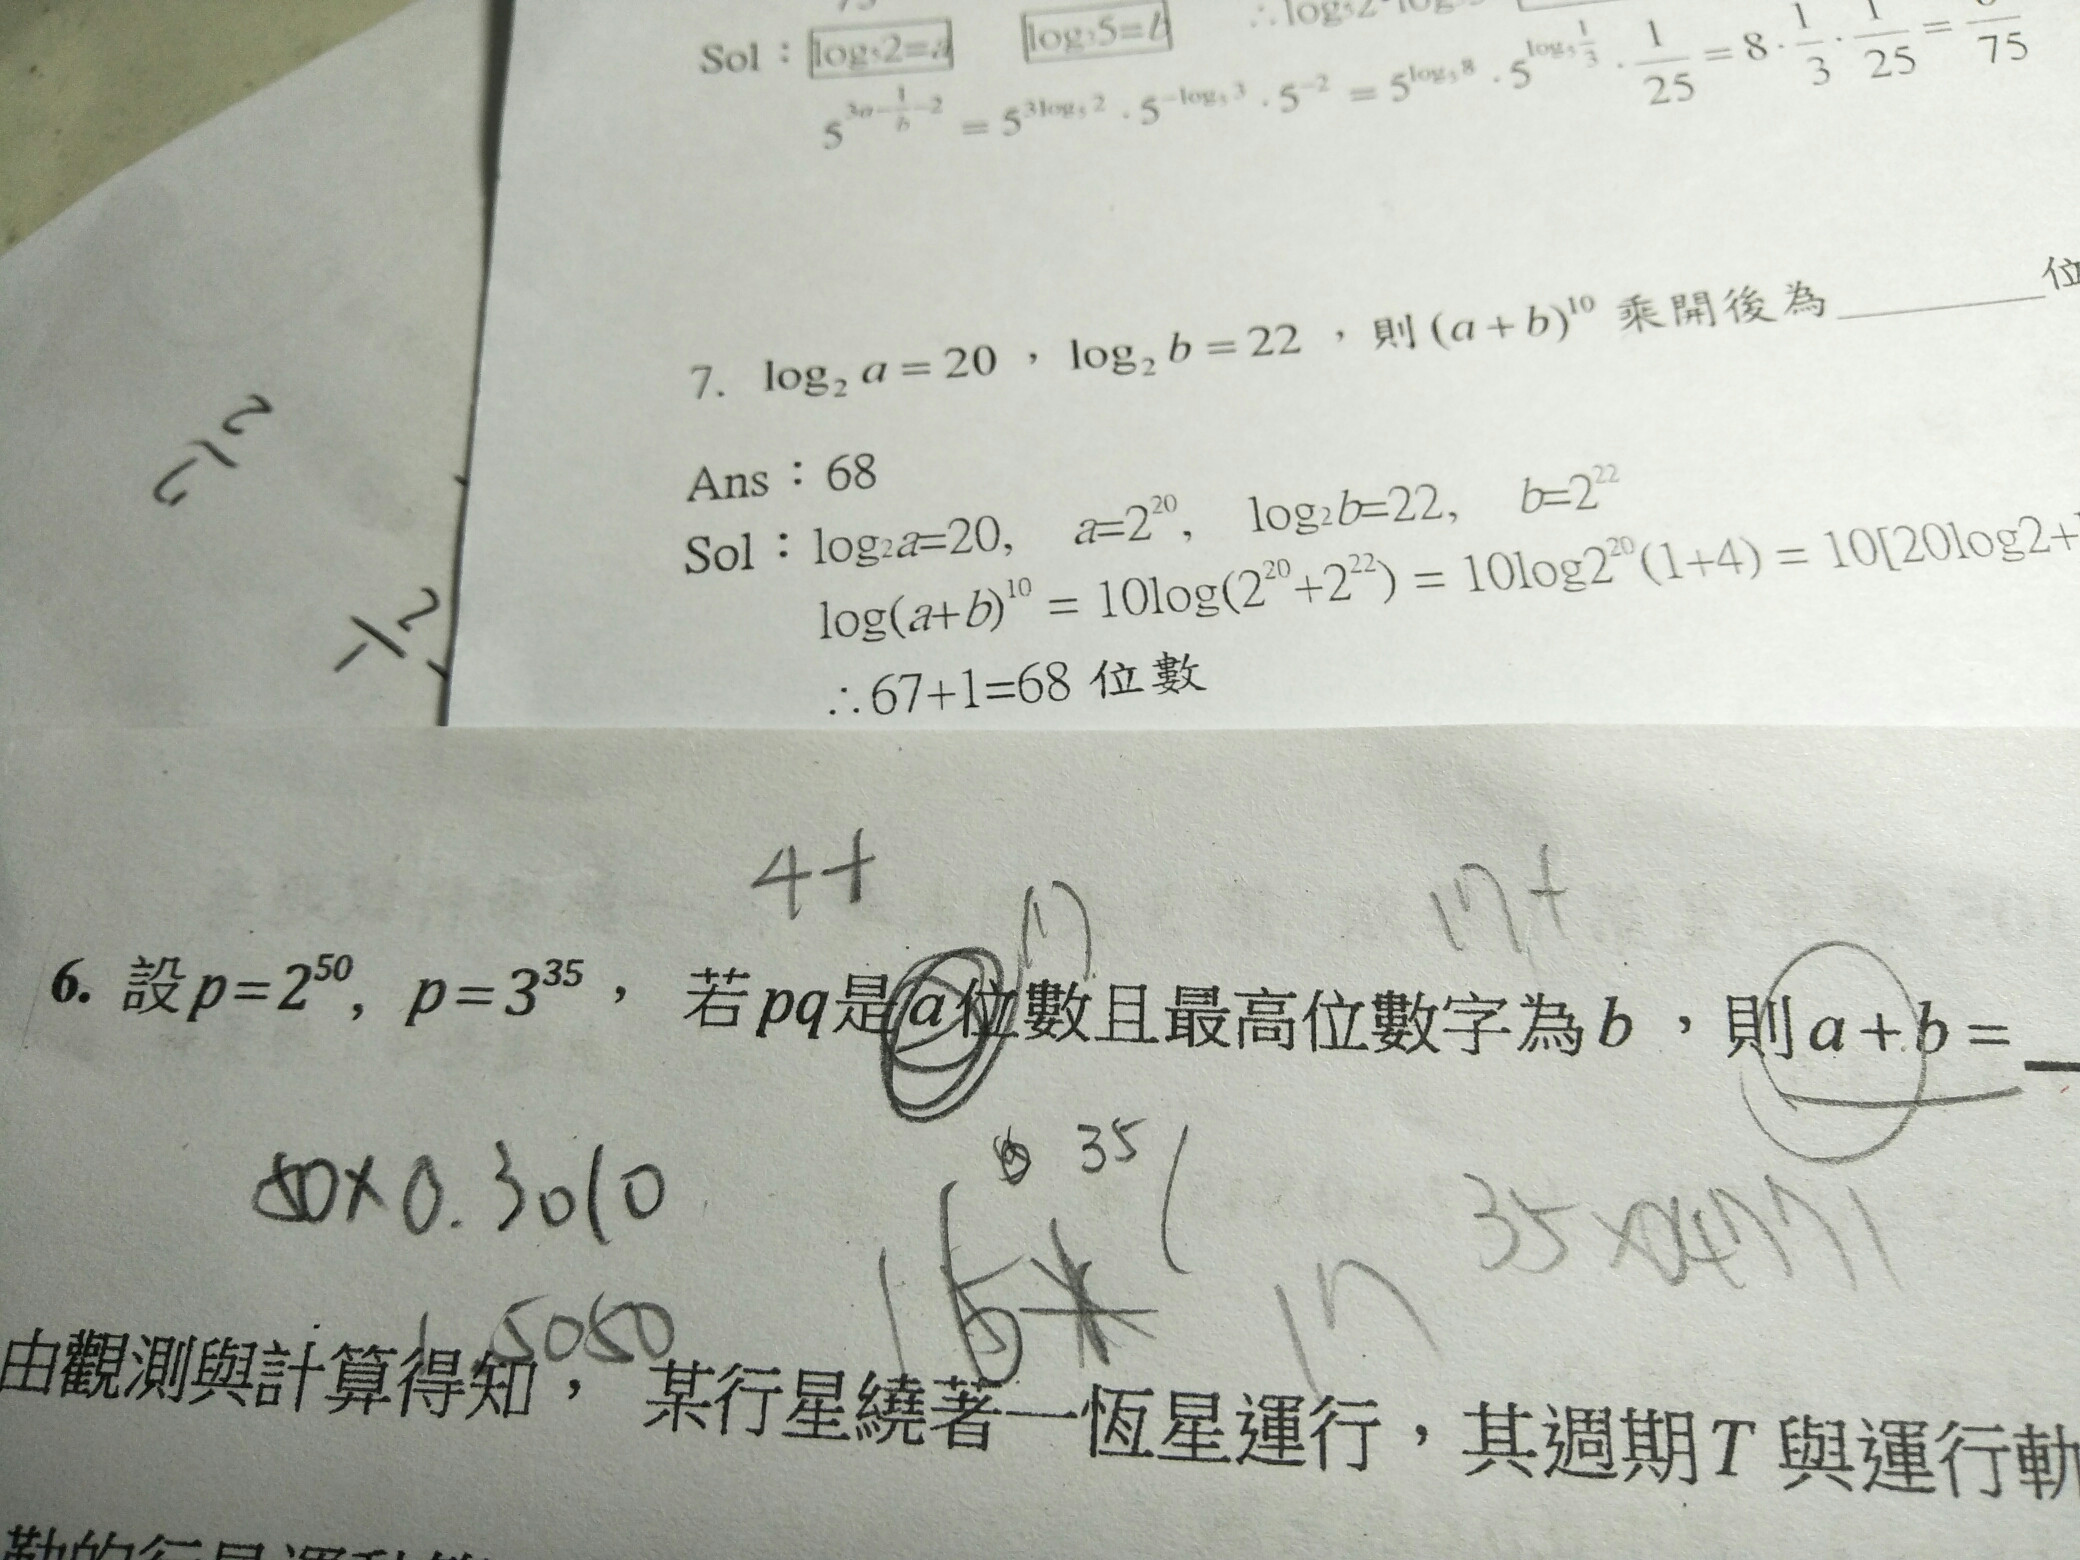 Sol：log₅2=a log₃5=b
5^{3a-\frac{1}{b}-2} = 5^{3log₅2} · 5^{-log₅3} · 5^{-2} = 5^{log₅8} · 5^{log₅\frac{1}{3}} · \frac{1}{25} = 8 · \frac{1}{3} · \frac{1}{25} = \frac{}{75}
7. log₂ a = 20 ， log₂ b = 22 ，則 (a + b)¹⁰ 乘開後為______位
Ans：68
Sol：log₂a=20, a=2²⁰, log₂b=22, b=2²²
log(a+b)¹⁰ = 10log(2²⁰+2²²) = 10log2²⁰(1+4) = 10[20log2+
∴67+1=68 位數
4+ 17 17+
6. 設 p=2⁵⁰, p=3³⁵， 若 pq 是 a 位數且最高位數字為 b ，則 a + b =
35
50×0.3010 35×0.4771
17
由觀測與計算得知， 某行星繞著一恆星運行，其週期 T 與運行軌
勒的行星運動